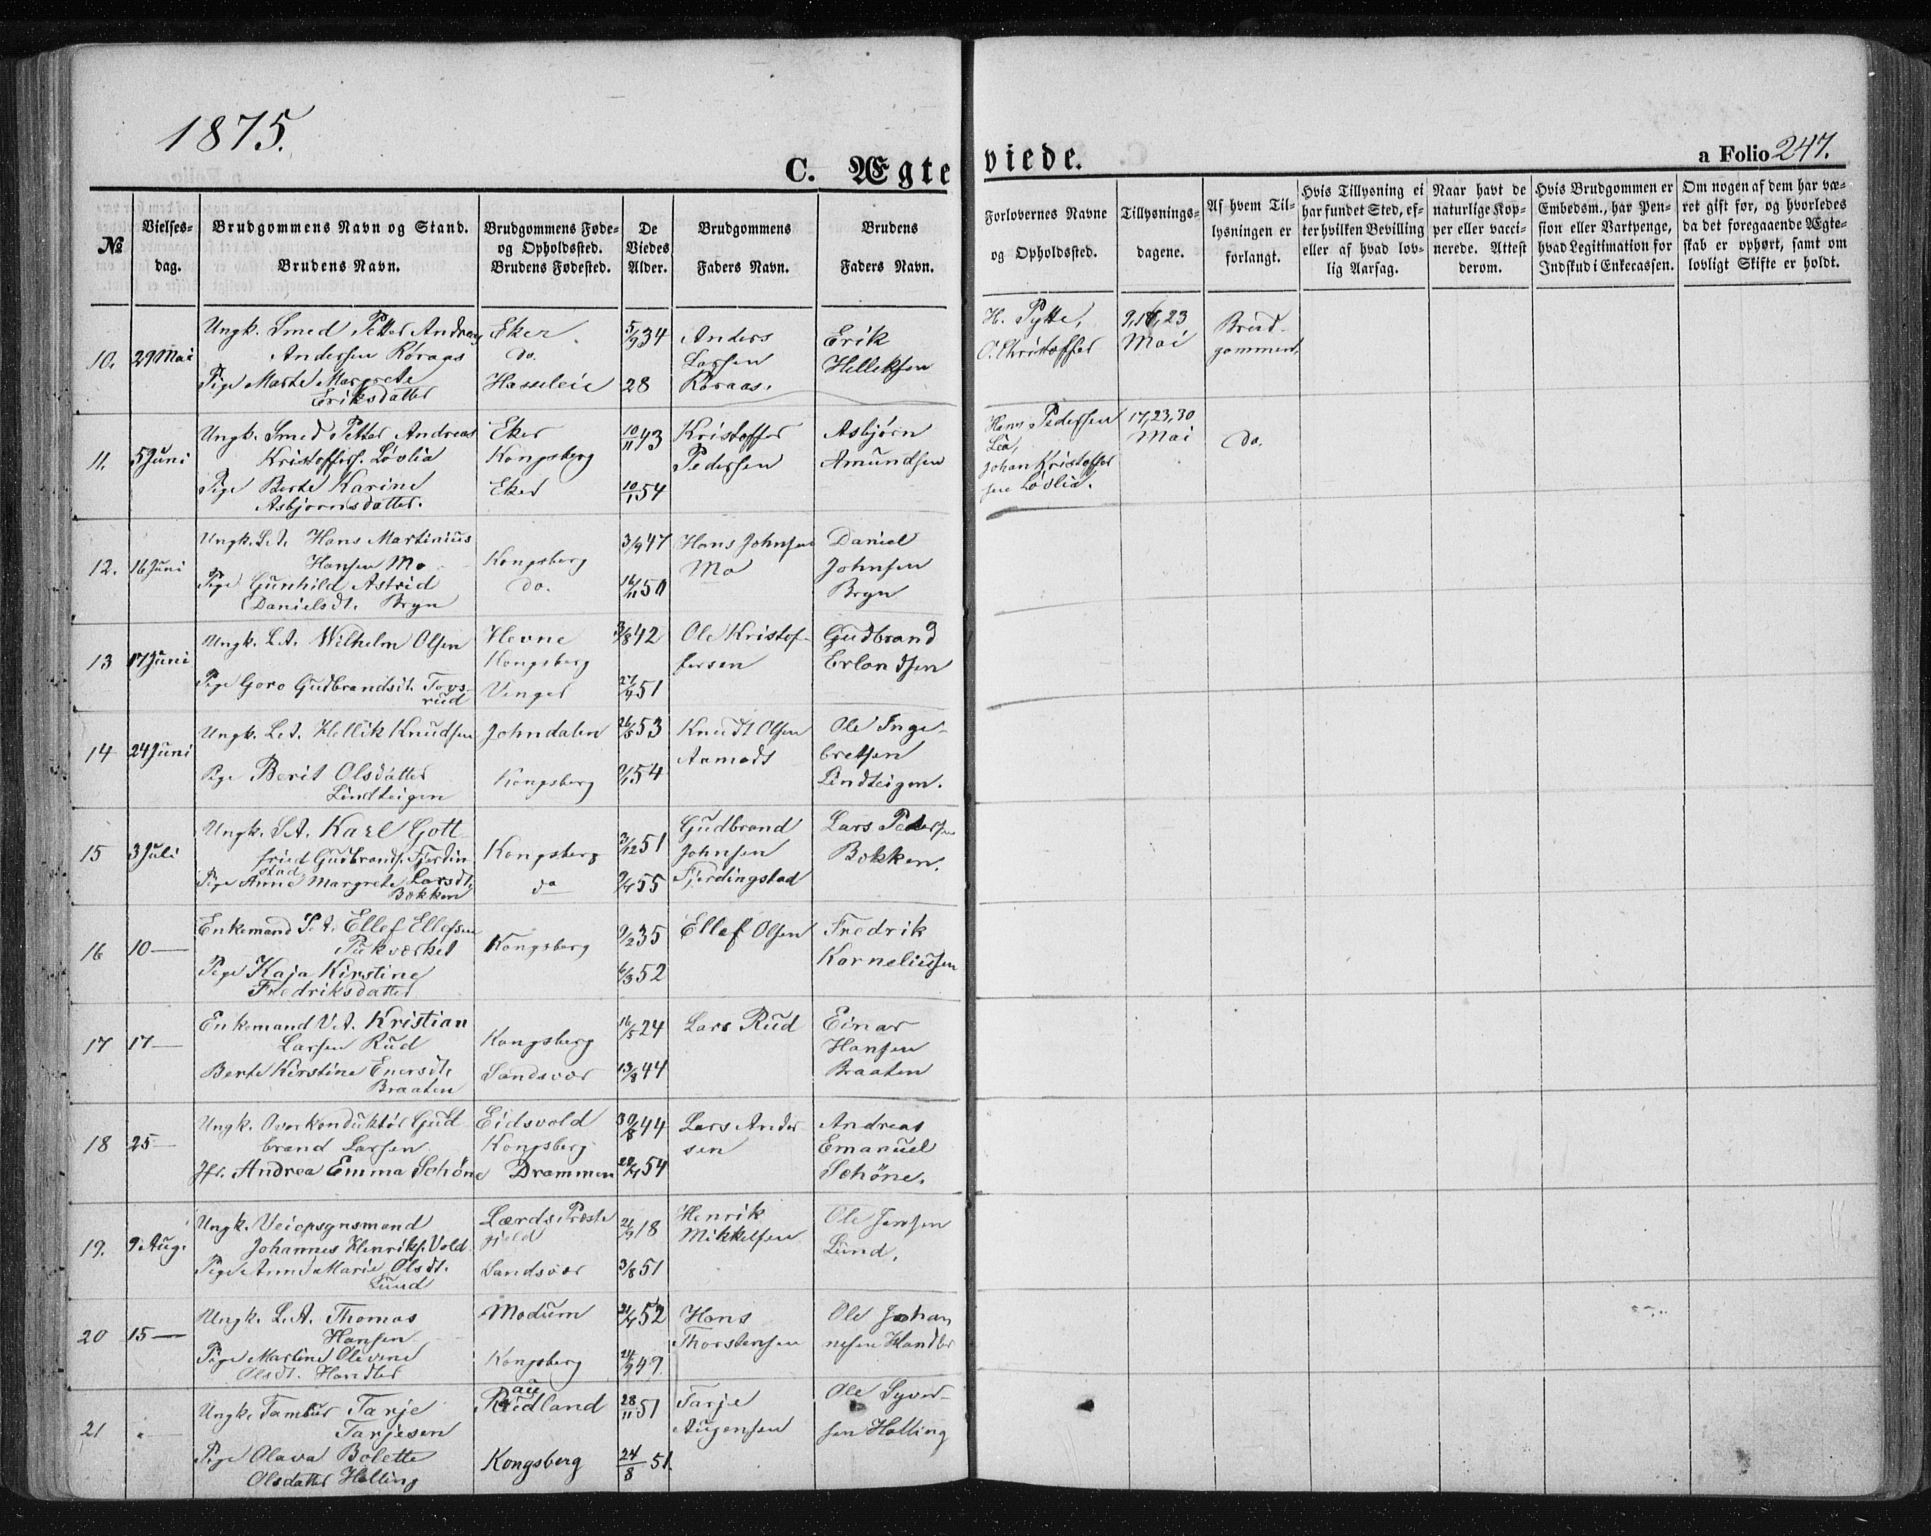 1875.
C. Ægte
viede.
a Folio 247.
№
Vielses-
dag.
Brudgommens Navn og Stand.
Brudens Navn.
Brudgommens Føde-
og Opholdssted.
Brudens Fødested.
De
Viedes
Alder.
Brudgommens
Faders Navn.
Brudens
Faders Navn.
Forlovernes Navne
og Opholdssted.
Tillysnings-
dagene.
Af hvem Til-
lysningen er
forlangt.
Hvis Tillysning ei
har fundet Sted, ef-
ter hvilken Bevilling
eller af hvad lov-
lig Aarsag.
Naar havt de
naturlige Kop-
per eller vacci-
nerede. Attest
derom.
Hvis Brudgommen er
Embedsm., har Pen-
sion eller Vartpenge,
hvad Legitimation for
Indskud i Enkecassen.
Om nogen af dem har væ-
ret gift før, og hvorledes
da det foregaaende Ægte-
skab er ophørt, samt om
lovligt Skifte er holdt.
10. 29 Mai
Ungk. Smed Petter Andreas
Andersen Køraas
Pige Marte Margrete
Eriksdatter
Eker.
do.
Hasseleie
5/9 34
28
Anders
Larsen
Køraas.
Erik
Helleksen
H. Pytte,
O. Christoffer
9, 16, 23
Mai
Brud-
gommen.
11. 5 Juni
Ungk. Smed Petter Andreas
Kristoffers. Løvlia
Pige Berte Karine
Asbjørnsdatter.
Eker
Kongsberg
Eker
10/11 43
10/1 54
Kristoffer
Pedersen
Asbjørn
Amundsen
Hans Pedersen
Lia,
Johan Kristoffer
sen Løvlia.
17, 23, 30
Mai
do.
12. 16 Juni
Ungk. L.A. Hans Martinius
Hansen Mo
Pige Gunhild Astrid
Danielsdt. Bryn
Kongsberg
do.
3/9 47
16/11 50
Hans Johnsen
Mo
Daniel
Johnsen
Bryn
13 17 Juni
Ungk. L.A. Wilhelm Olsen
Pige Goro Gudbrandsdt. Tovs-
rud
Hevne
Kongsberg
Vinger
3/8 42
27/9 51
Ole Kristof-
fersen
Gudbrand
Erlandsen
14 24 Juni
Ungk. L.A. Hellik Knudsen
Pige Berit Olsdatter
Lindteigen
Johndalen
Kongsberg
26/8 53
9/1 54
Knudt Olsen
Aamodt
Ole Inge-
bretsen
Lindteigen.
15 3 Juli
Ungk. L.A. Karl Gott-
fried Gudbrands. Fjerdin
stad
Pige Anne Margrete Larsdt.
Bokken
Kongsberg
do
3/12 51
9/7 55
Gudbrand
Johnsen
Fjerdingstad
Lars Pedersen
Bokken.
16 10 —
Enkemand L.A. Ellef Ellefsen
Pukværket
Pige Kaja Kirstine
Fredriksdatter
Kongsberg
9/2 35
6/3 52
Ellef Olsen
Fredrik
Korneliusen
17 17 —
Enkemand V.A. Kristian
Larsen Rud
Berte Kirstine Enersdt.
Braaten
Kongsberg
Sandsvær
16/5 24
13/8 44
Lars Rud
Einar
Hansen
Braaten
18 25 —
Ungk. Overkonduktør Gud
brand Larsen
Jfr. Andrea Emma Schöne
Eidsvold
Kongsberg
Drammen
30/8 44
22/7 54
Lars Ander
sen
Andreas
Emanuel
Schöne.
19. 9 Aug.
Ungk. Veiopsynsmand
Johannes Henriks. Vold
Pige Anne Marie Olsdt.
Lund
Lærds. Præste
gjeld
Sandsvær
21/9 18
3/8 51
Henrik
Mikkelsen
Ole Jensen
Lund.
20 15 —
Ungk. L.A. Thomas
Hansen
Pige Martine Olevine
Olsdt. Handler
Modum
Kongsberg
21/7 52
24/9 49
Hans
Thorstensen
Ole Johan
nesen Handler
21
Ungk. Tambur Tarje
Tarjesen
Pige Olava Bolette
Olsdatter Halling
Raudland
au
Kongsberg
28/11 51
24/8 51.
Tarje
Augensen
Ole Syver-
sen Halling